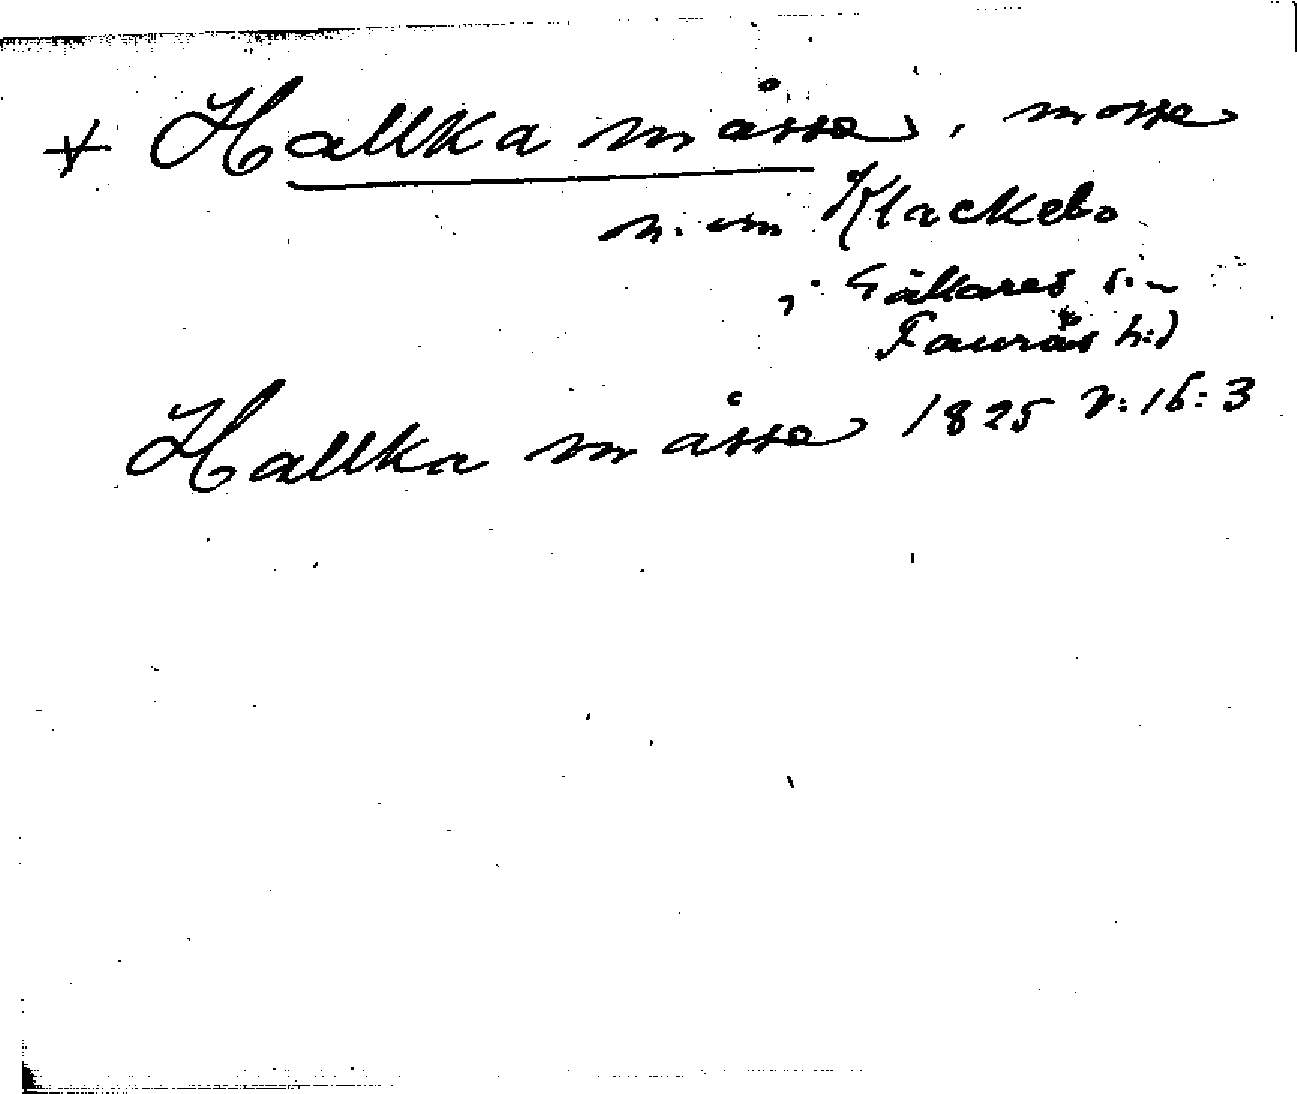 * Hallka måsse, mosse
n. om Klackebo
i Gällared s:n
Faurås h:d
Hallka måsse 1825 v:16:3